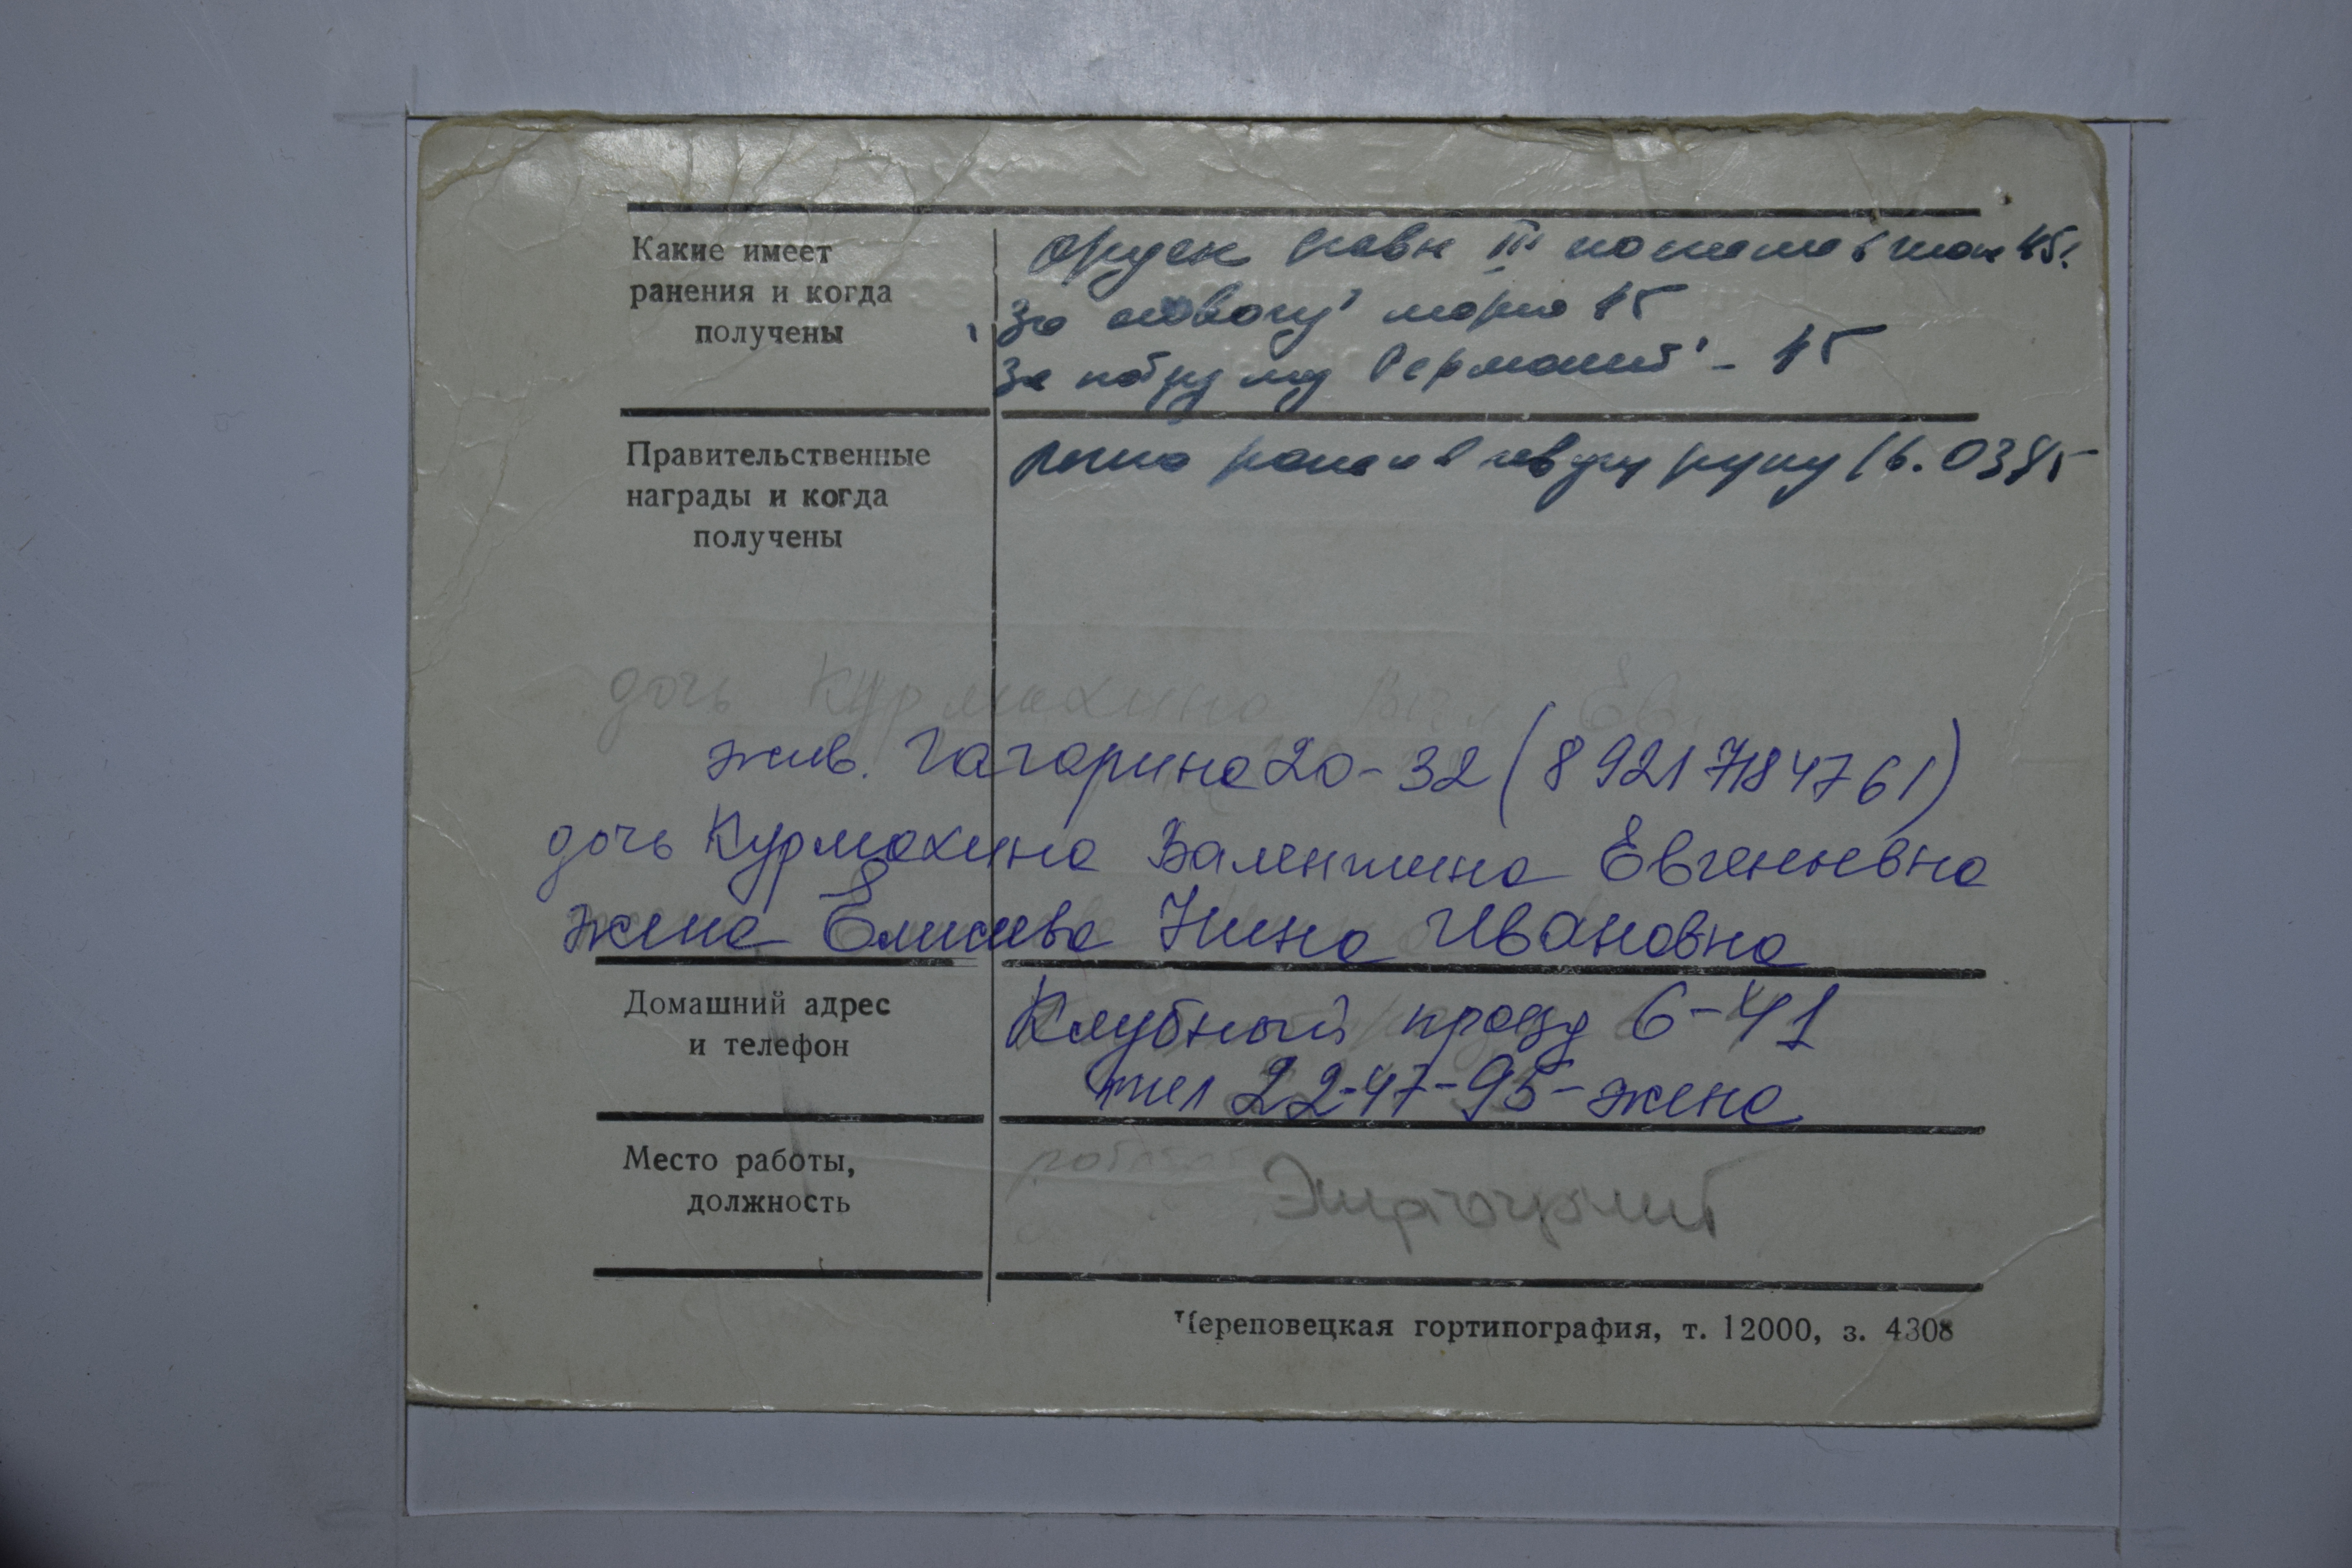 Какие имеет
ранения и когда
получены
орден Славы III
За отвагу март 45
За победу над Германией - 45
Правительственные
награды и когда
получены
легко ранен в левую руку 16.0345
дочь Курмахина Вал Ев.
жив. Гагарина 20-32 (8 921 7184761)
дочь Курмахина Валентина Евгеньевна
жена Елисеева Нина Ивановна
Домашний адрес
и телефон
Клубный проезд 6-41
тел 22-47-95-жена
Место работы,
должность
работает
Череповецкая гортипография, т. 12000, з. 4308